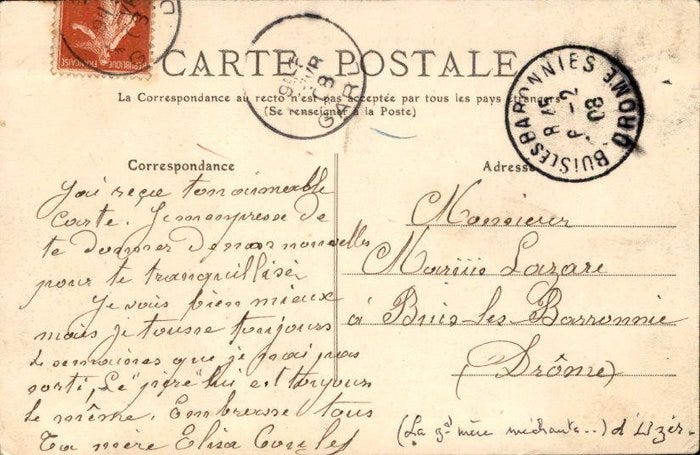 RÉPUBLIQUE FRANÇAISE
CARTE POSTALE
La Correspondance au recto n'est pas acceptée par tous les pays étrangers
(Se renseigner à la Poste)
GARD
BUIS-LES-BARONNIES DROME
Correspondance
Adresse
J'ai reçue ton aimable
carte. Je m'empresse de
te donner de mes nouvelles
pour te tranquilliser
Je vais bien mieux
mais je tousse toujours
semaines que je n'ai pas
sorti, Le père lui est toujours
le même. Embrasse tous
Ta mère Elisa
Monsieur
Lazare
à Buis-les-Barronnie
(Drôme)
(La gd mère méchante..) d'Uzés.